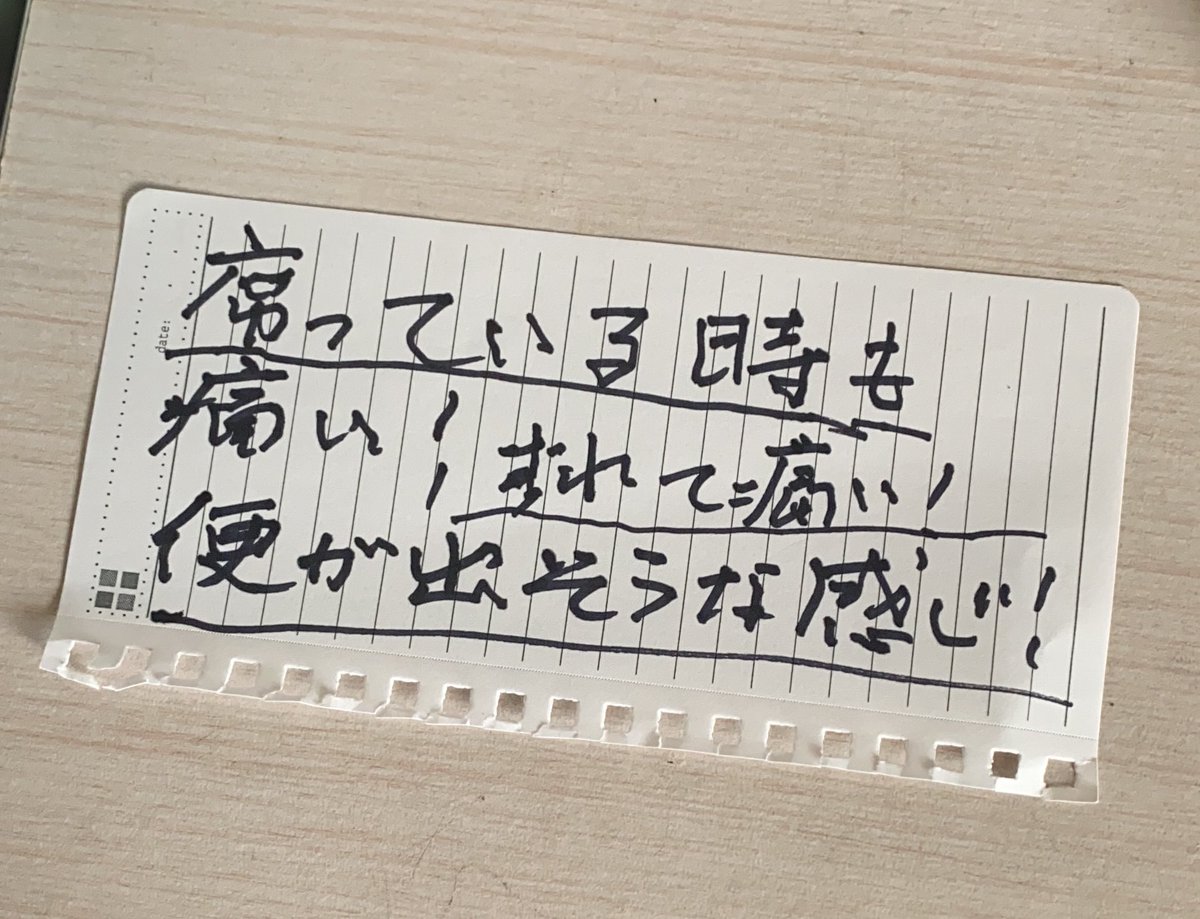 date:
っている時も
痛い! れて痛い!
便が出そうな感じ!